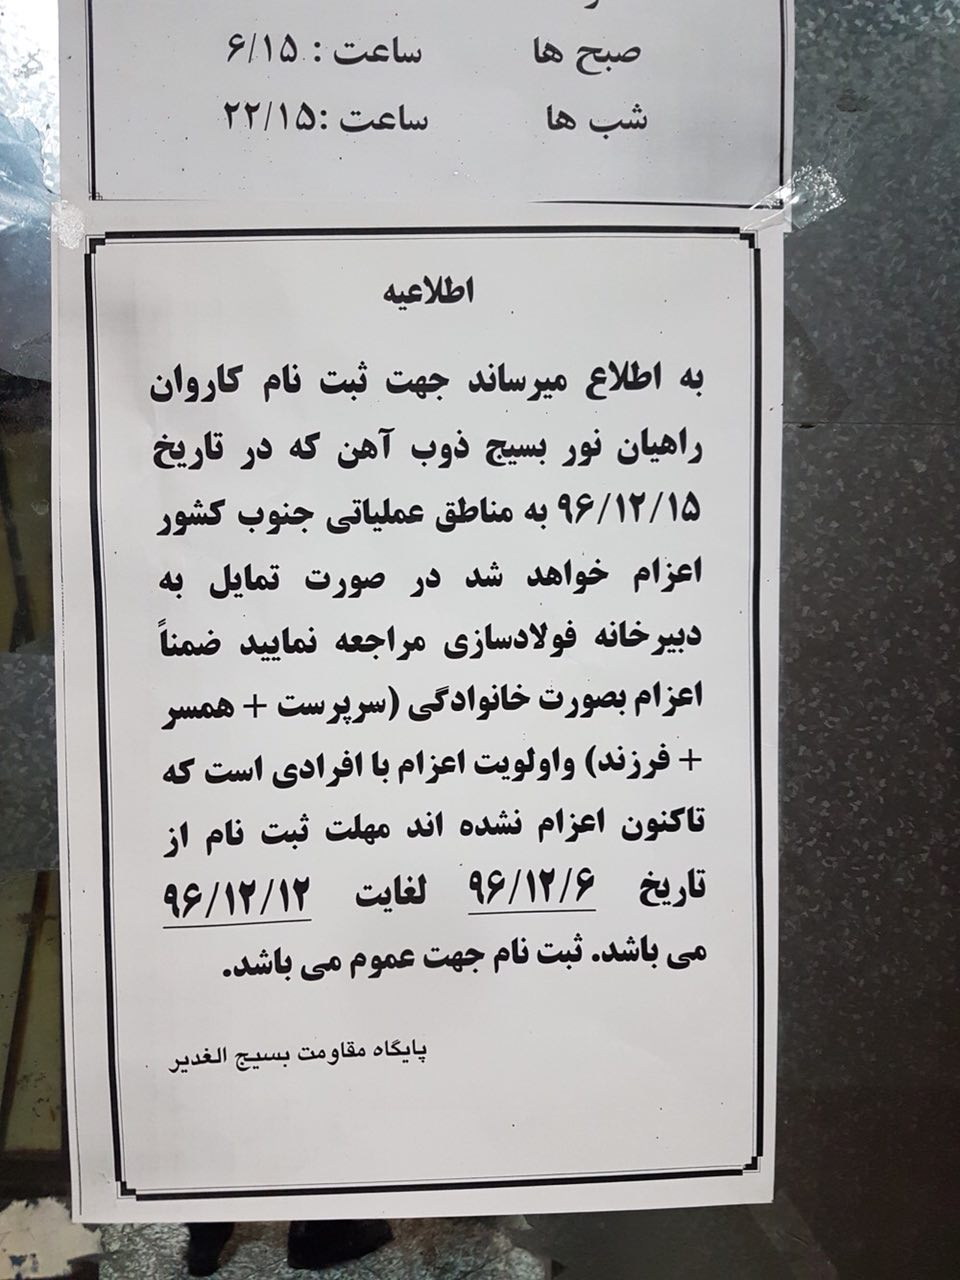 صبح ها ساعت : ۶/۱۵
شب ها ساعت :۲۲/۱۵
اطلاعیه
به اطلاع میرساند جهت ثبت نام کاروان
راهیان نور بسیج ذوب آهن که در تاریخ
۹۶/۱۲/۱۵ به مناطق عملیاتی جنوب کشور
اعزام خواهد شد در صورت تمایل به
دبیرخانه فولادسازی مراجعه نمایید ضمناً
اعزام بصورت خانوادگی (سرپرست + همسر
+ فرزند) واولویت اعزام با افرادی است که
تاکنون اعزام نشده اند مهلت ثبت نام از
تاریخ ۹۶/۱۲/۶ لغایت ۹۶/۱۲/۱۲
می باشد. ثبت نام جهت عموم می باشد.
پایگاه مقاومت بسیج الغدیر